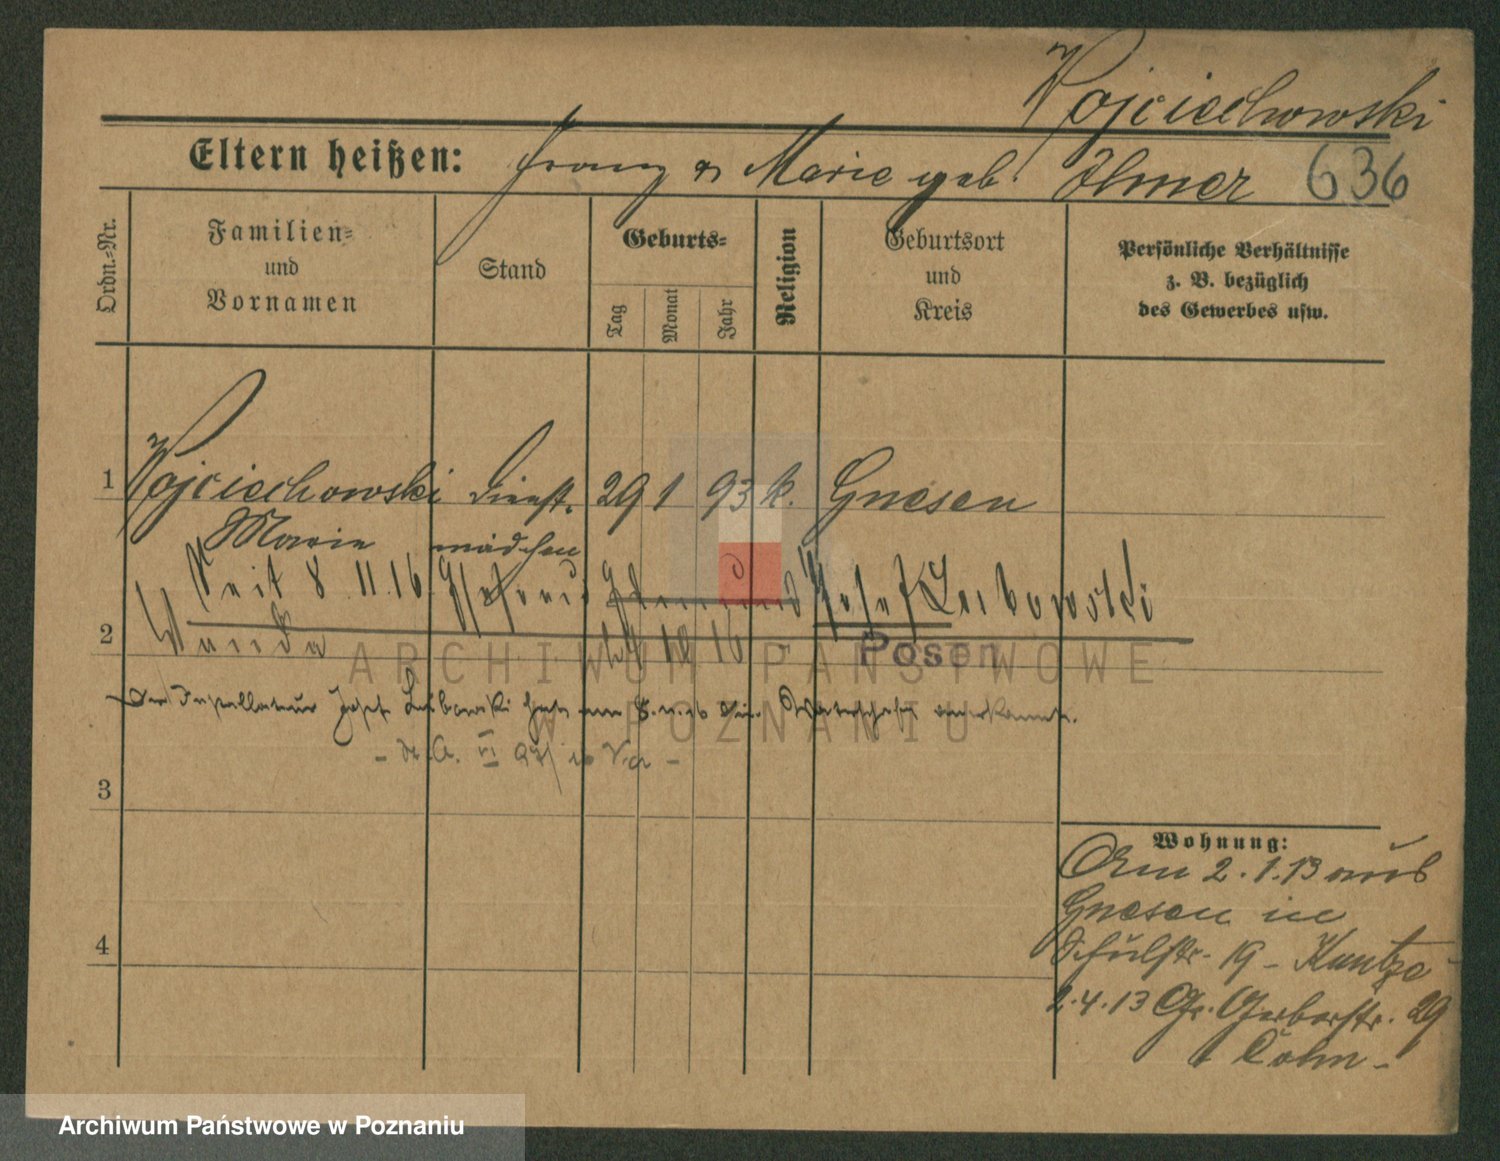 Wojciechowski
Eltern heißen: Franz u Marie geb. Ilmer 636
Ordn.-Nr.
Familien-
und
Vornamen
Stand
Geburts-
Tag
Monat
Jahr
Religion
Geburtsort
und
Kreis
Persönliche Verhältnisse
z. B. bezüglich
des Gewerbes usw.
1 Wojciechowski Dienst- 29 1 93 k. Gnesen
Marie mädchen
Seit 8 11 16 Josef Leibowski
2 Wanda 24 10 16 Posen
Der Installateur Josef Leibowski hat am 8.11.16 die Vaterschaft anerkannt.
3
4
Wohnung:
Am 2.1.13 aus
Gnesen in
Schulstr. 19 - Kuntze
2.4.13 Gr. Gerberstr. 29
Cohn -
ARCHIWUM PAŃSTWOWE
W POZNANIU
Archiwum Państwowe w Poznaniu